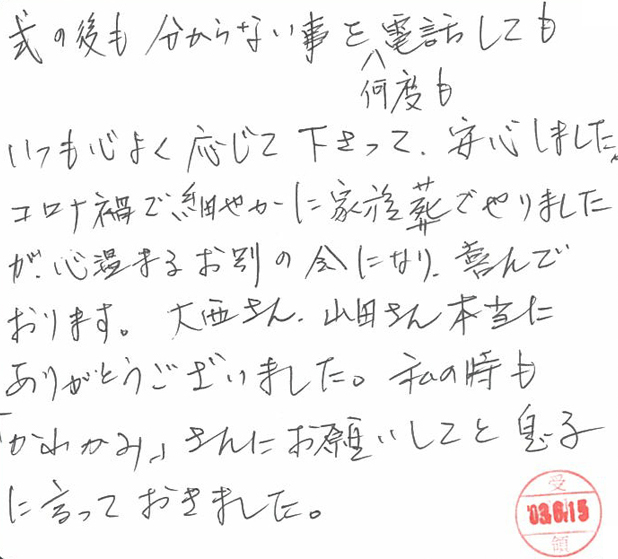 式の後も分からない事を電話しても
何度も
いつも心よく応じて下さって、安心しました。
コロナ禍で細やかに家族葬でやりました
が、心温まるお別の会になり、喜んで
おります。大西さん、山田さん本当に
ありがとうございました。私の時も
「かわかみ」さんにお願いしてと息子
に言っておきました。
受
'03.6.15
領